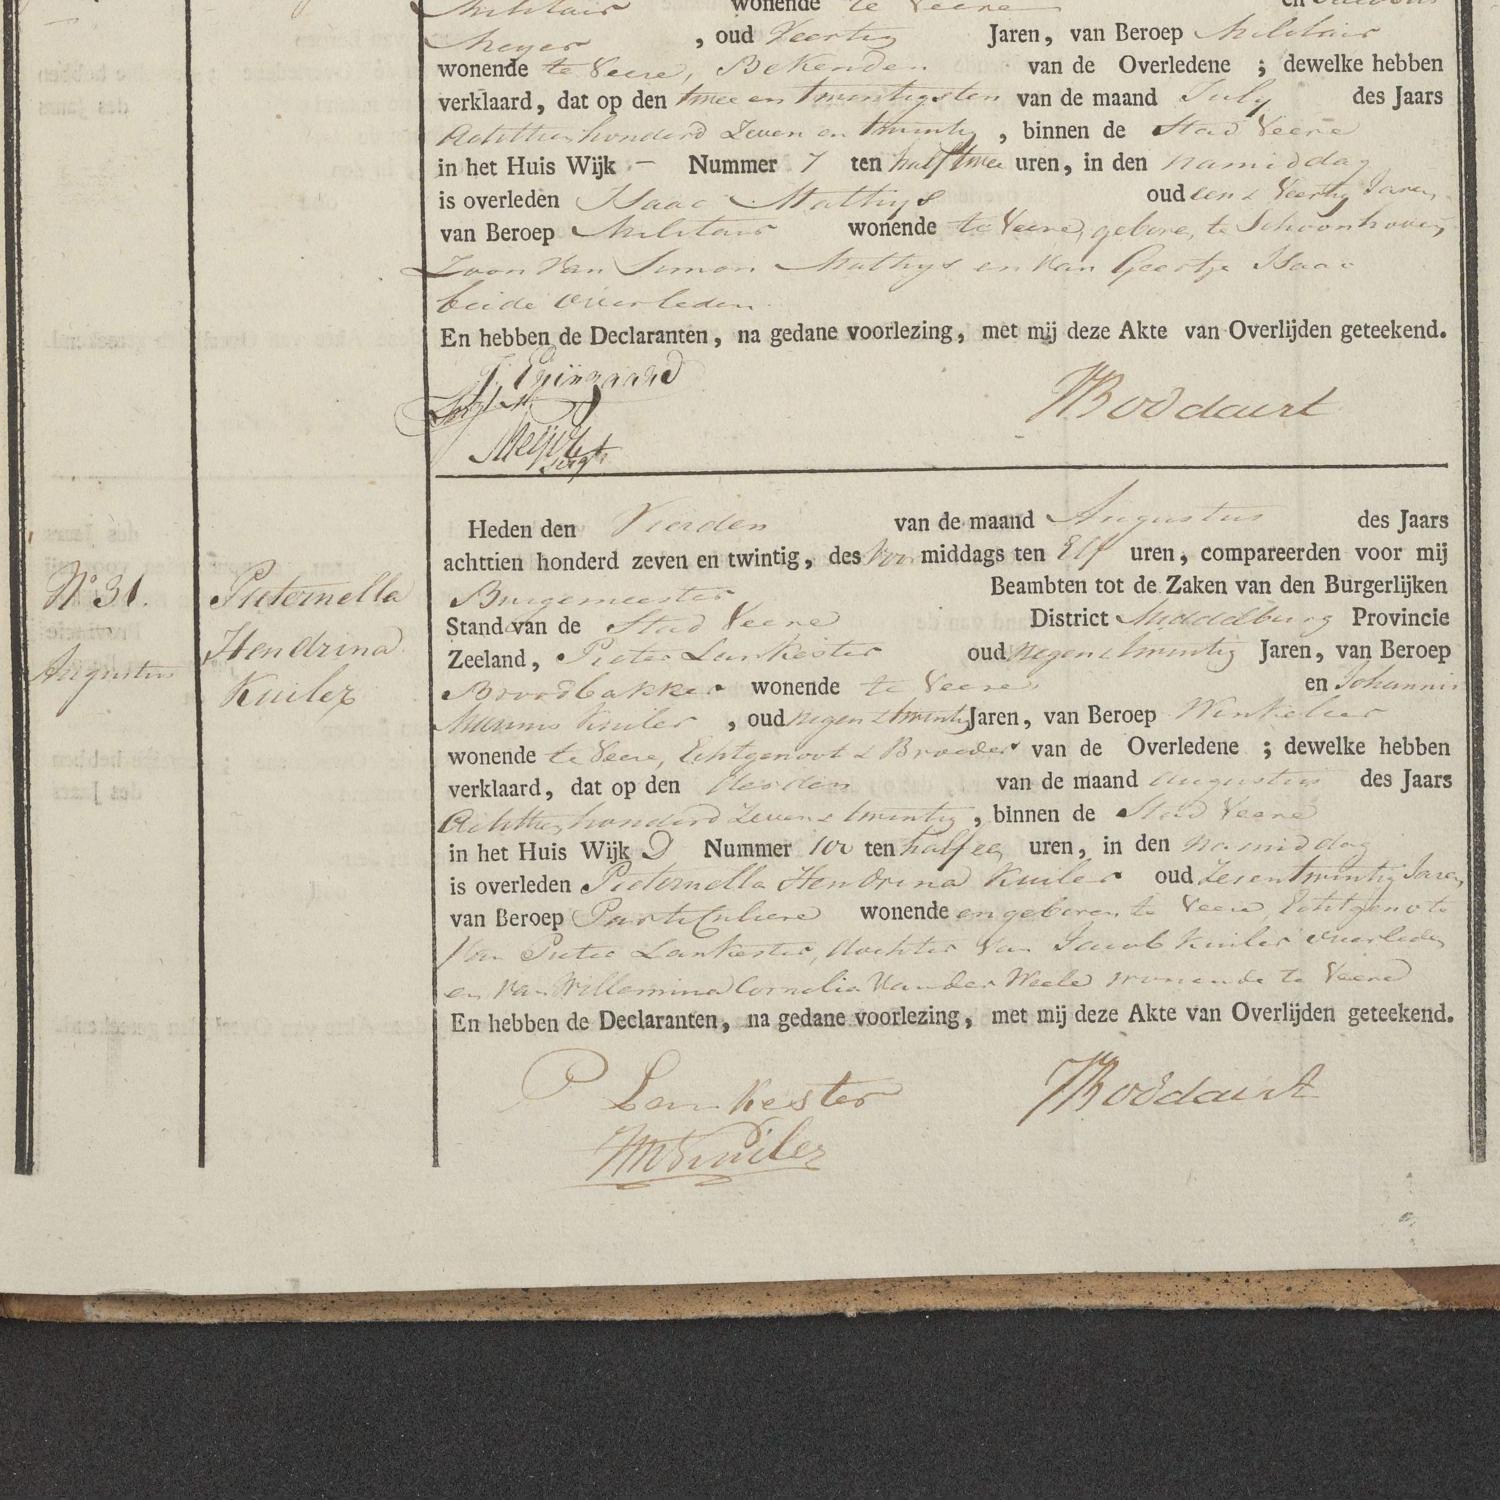 Militair wonende te Veere en
Meyer , oud Veertig Jaren, van Beroep Militair
wonende te Veere, Bekenden van de Overledene ; dewelke hebben
verklaard, dat op den twee en twintigsten van de maand July des Jaars
Achttien honderd Zeven en twintig , binnen de Stad Veere
in het Huis Wijk – Nummer 7 ten half twee uren, in den namiddag
is overleden Isaac Mathys oud een & Veertig Jaren,
van Beroep Militair wonende te Veere, geboren te Schoonhoven,
Zoon van Simon Mathys en van Geertje Isaac
beide overleden
En hebben de Declaranten, na gedane voorlezing, met mij deze Akte van Overlijden geteekend.
Boddaert
Meijer
Heden den Vierden van de maand Augustus des Jaars
achttien honderd zeven en twintig, des Voor middags ten Elf uren, compareerden voor mij
Burgemeester Beambten tot de Zaken van den Burgerlijken
Stand van de Stad Veere District Middelburg Provincie
Zeeland, Pieter Lankester oud negen & twintig Jaren, van Beroep
Broodbakker wonende te Veere en Johannis
Kuiler , oud negen & twintig Jaren, van Beroep Winkelier
wonende te Veere, Echtgenoot & Broeder van de Overledene ; dewelke hebben
verklaard, dat op den Derden van de maand Augustus des Jaars
Achttien honderd Zeven & twintig , binnen de Stad Veere
in het Huis Wijk D Nummer 100 ten half een uren, in den namiddag
is overleden Pieternella Hendrina Kuiler oud Zes en twintig Jaren,
van Beroep Particuliere wonende en geboren te Veere, Echtgenote
Van Pieter Lankester, dochter van Jacob Kuiler overleden
en van Willemina Cornelia Van der Weele wonende te Veere
En hebben de Declaranten, na gedane voorlezing, met mij deze Akte van Overlijden geteekend.
P Lankester
Boddaert
JM Kuiler
N° 31.
Augustus
Pieternella
Hendrina
Kuiler